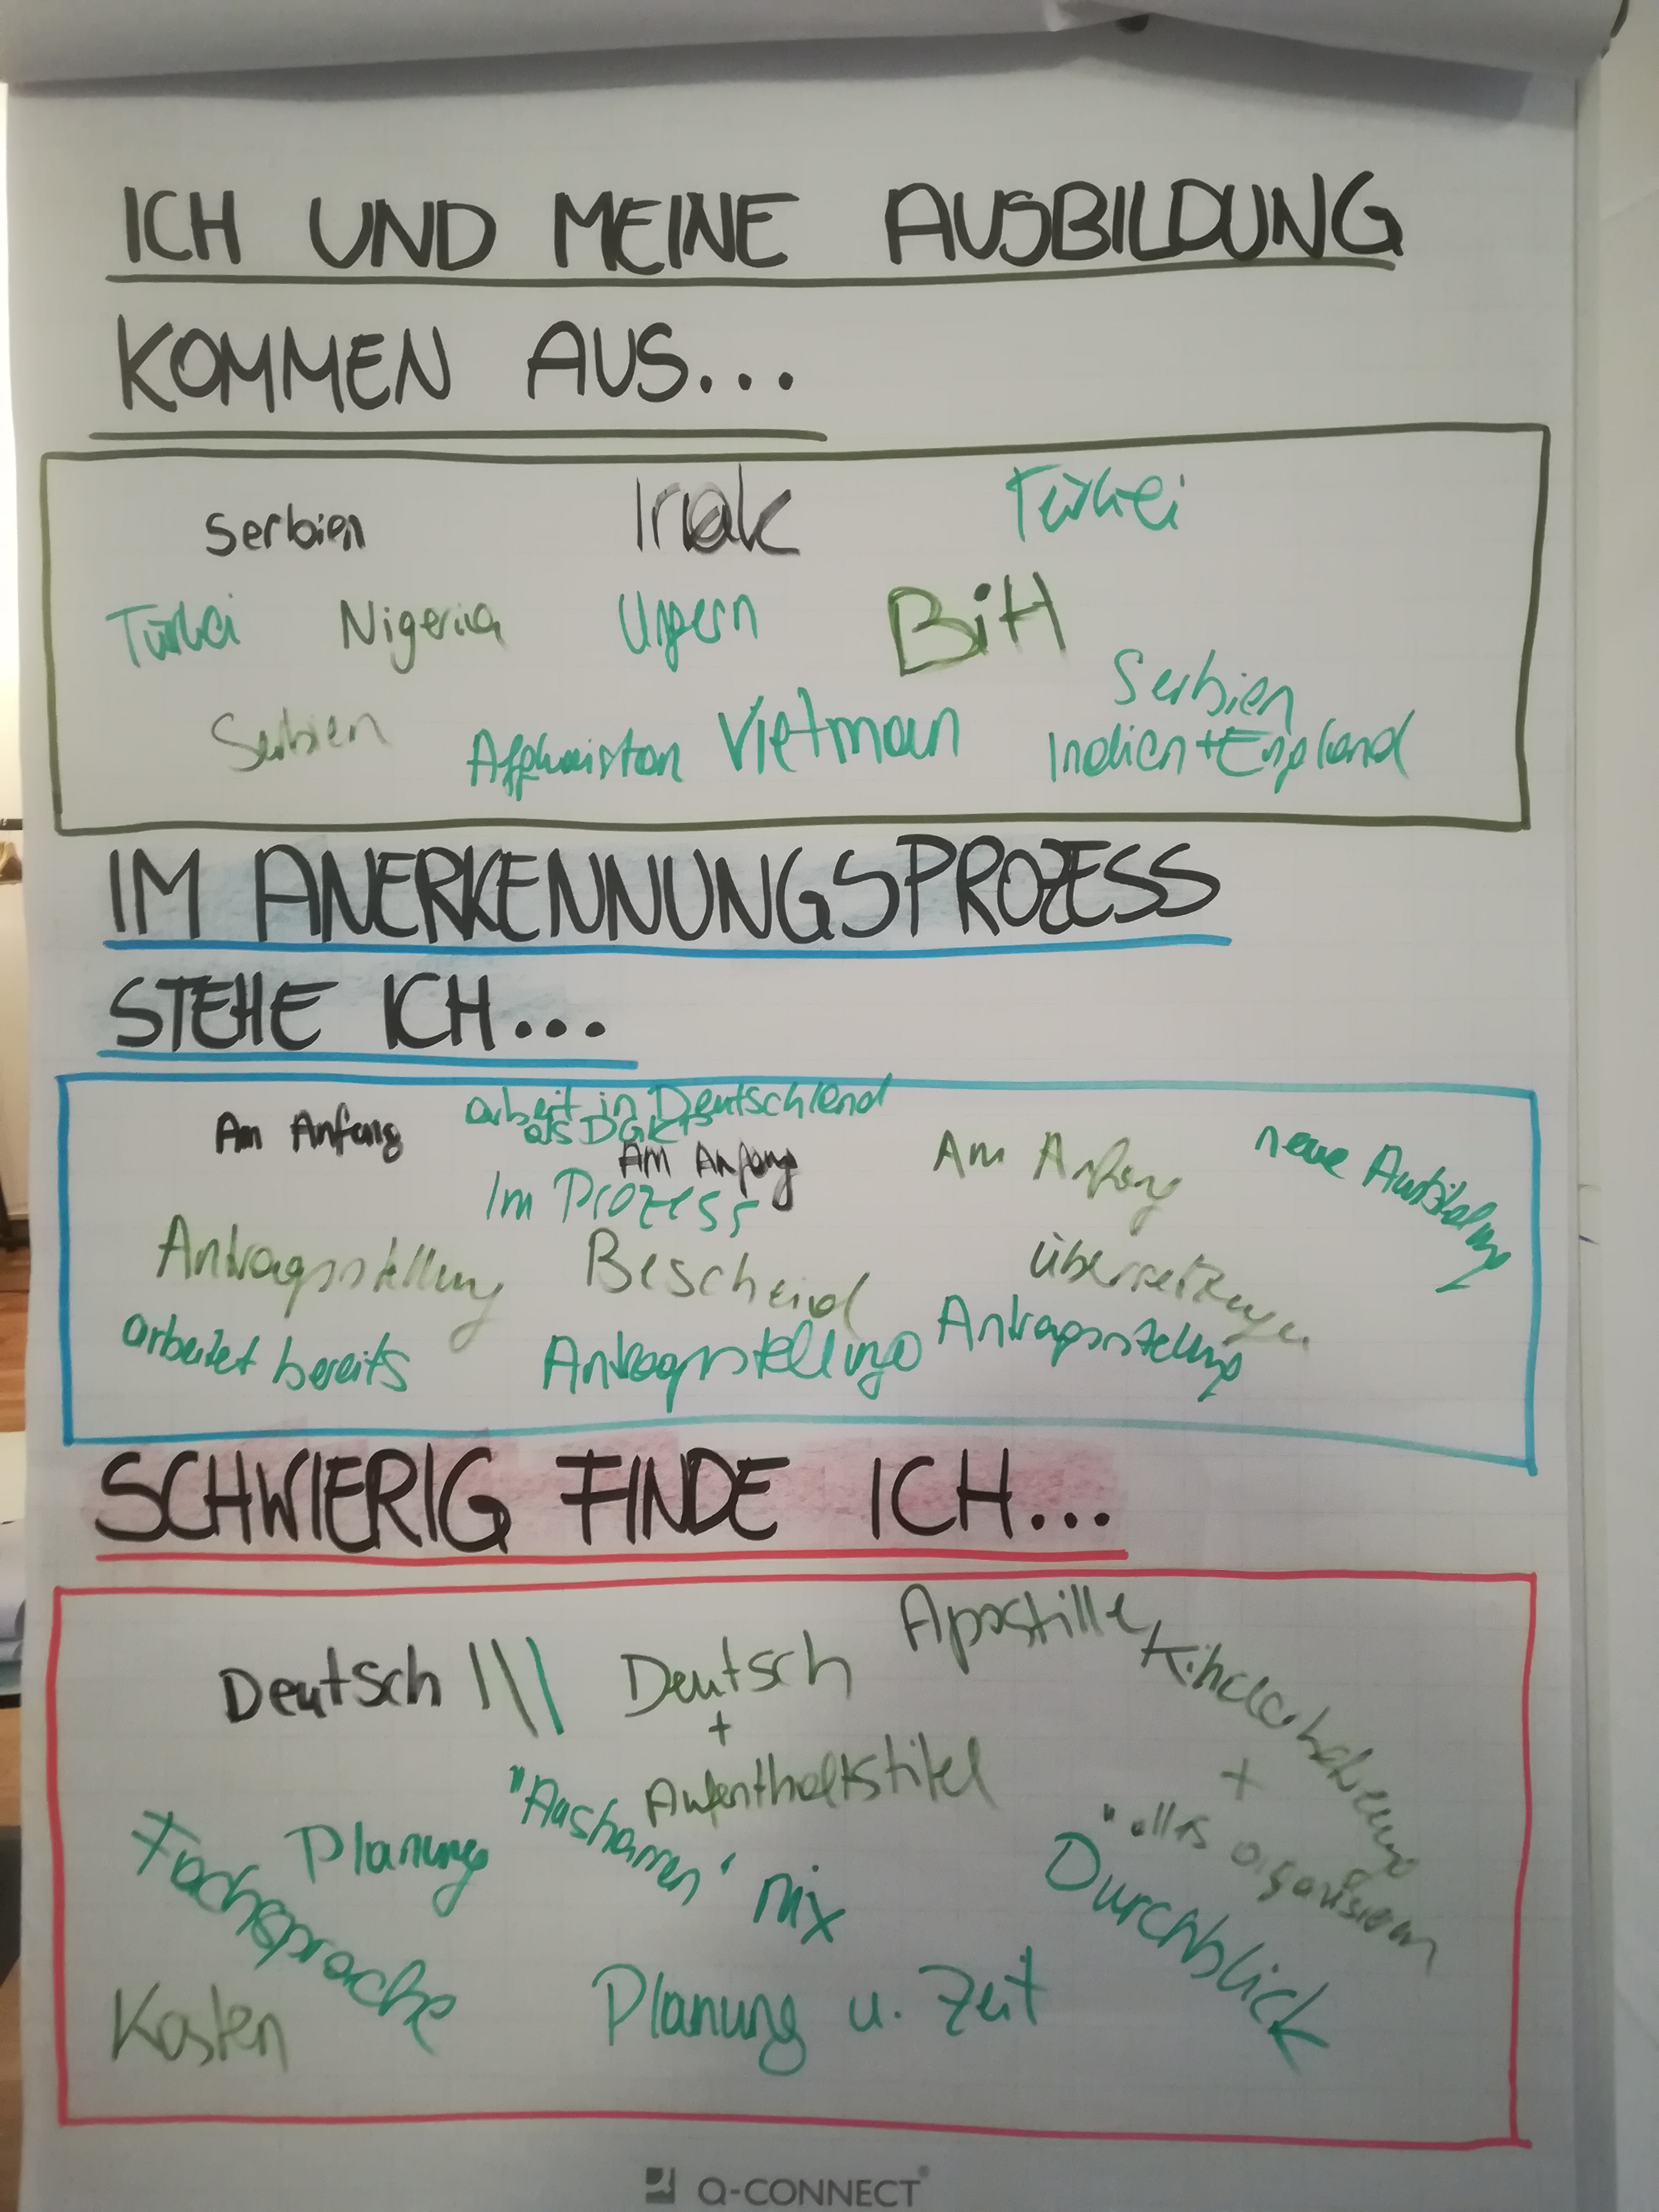 ICH UND MEINE AUSBILDUNG
KOMMEN AUS...
Serbien Irak Türkei
Türkei Nigeria Ungern BiH
Serbien
Serbien Afghanistan Vietman
Indien + England
IM ANERKENNUNGSPROZESS
STEHE ICH...
arbeit in Deutschland
als DGKP
Am Anfang Am Anfang Am Anfang neue Ausbildung
Im Prozess
Antragsstellung Bescheid Übersetzungen
arbeitet bereits Antragsstellung Antragsstellung
SCHWIERIG FINDE ICH...
Apostille
Deutsch ||| Deutsch Kinderbetreuung
+
Aufenthaltstitel +
"Ausharren" "alles organisieren
Fachsprache Planung nix Durchblick
Kosten Planung u. Zeit
Q-CONNECT